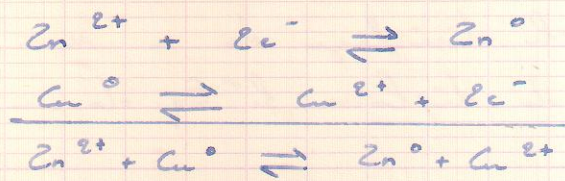 Zn²⁺ + 2e⁻ ⇌ Zn⁰
Cu⁰ ⇌ Cu²⁺ + 2e⁻
Zn²⁺ + Cu⁰ ⇌ Zn⁰ + Cu²⁺